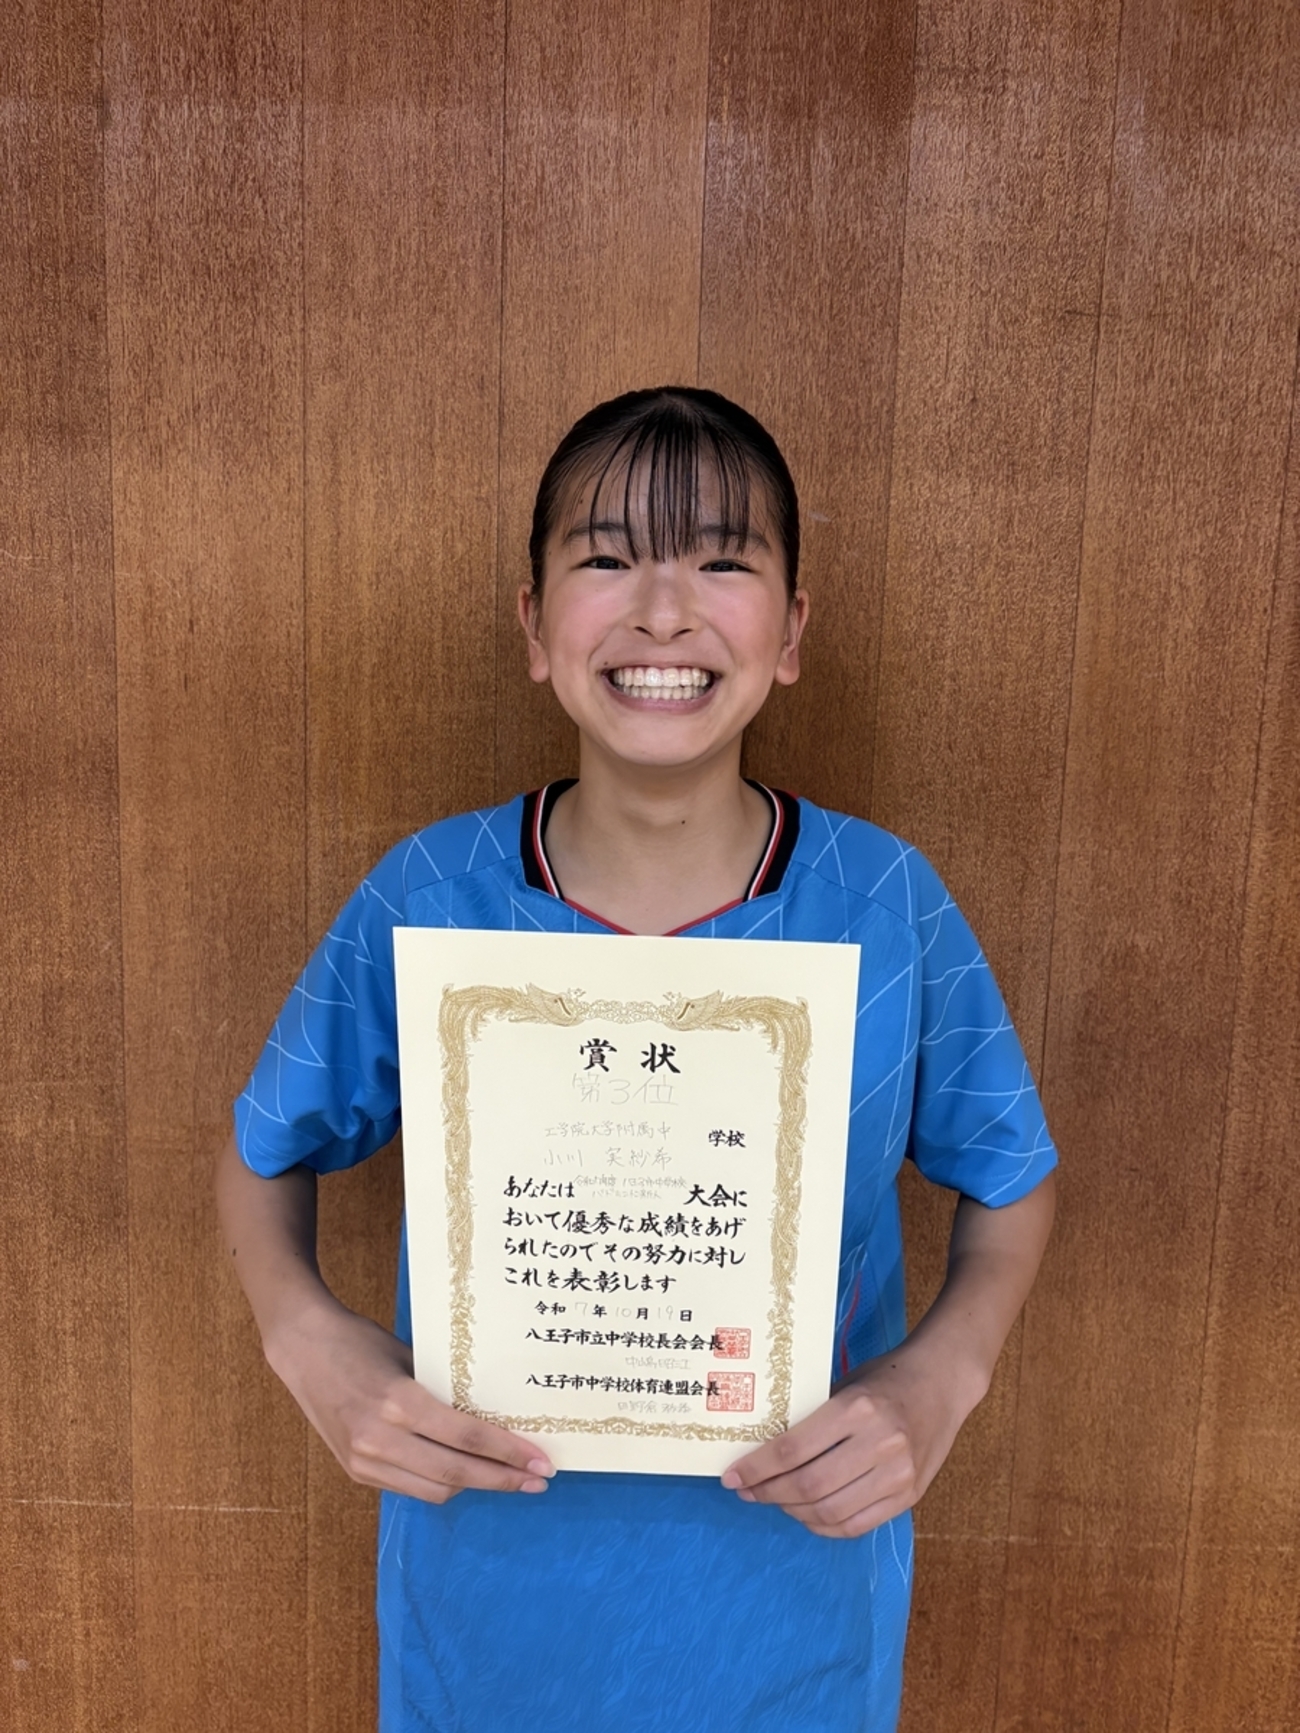 賞状
第3位
工学院大学附属中 学校
小川 実紗希
あなたは 令和7年度 八王子市中学校 大会に
おいて優秀な成績をあげ
られたのでその努力に対し
これを表彰します
令和7年10月19日
八王子市立中学校長会会長
八王子市中学校体育連盟会長